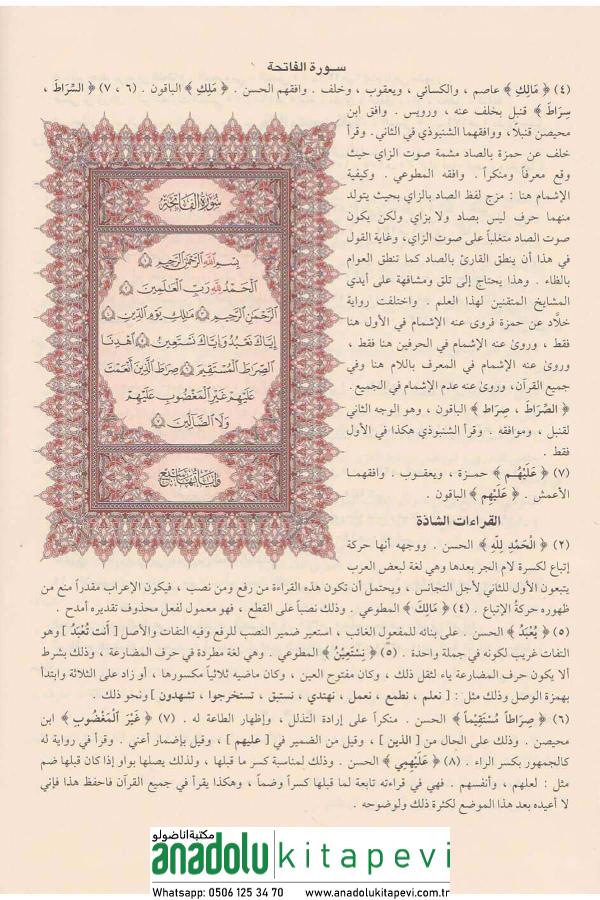 سورة الفاتحة
(٤) ﴿ مَالِكِ ﴾ عاصم ، والكسائي ، ويعقوب ، وخلف . وافقهم الحسن . ﴿ مَلِكِ ﴾ الباقون . (٦ ، ٧) ﴿ السِّرَاطَ ،
سِرَاطَ ﴾ قنبل بخلف عنه ، ورويس . وافق ابن
محيصن قنبلاً ، ووافقهما الشنبوذي في الثاني. وقرأ
خلف عن حمزة بالصاد مشمة صوت الزاي حيث
وقع معرفاً ومنكراً . وافقه المطوعي . وكيفية
الإشمام هنا : مزج لفظ الصاد بالزاي بحيث يتولد
منهما حرف ليس بصاد ولا بزاي ولكن يكون
صوت الصاد متغلباً على صوت الزاي، وغاية القول
في هذا أن ينطق القارئ بالصاد كما تنطق العوام
بالظاء . وهذا يحتاج إلى تلق ومشافهة على أيدي
المشايخ المتقنين لهذا العلم . واختلفت رواية
خلَّاد عن حمزة فروى عنه الإشمام في الأول هنا
فقط ، وروىٰ عنه الإشمام في الحرفين هنا فقط ،
وروىٰ عنه الإشمام في المعرف باللام هنا وفي
جميع القرآن، وروىٰ عنه عدم الإشمام في الجميع .
﴿ الصِّرَاطَ ، صِرَاط ﴾ الباقون ، وهو الوجه الثاني
لقنبل ، وموافقه . وقرأ الشنبوذي هكذا في الأول
فقط .
(٧) ﴿ عَلَيْهُم ﴾ حمزة ، ويعقوب . وافقهما
الأعمش . ﴿ عَلَيْهِم ﴾ الباقون .
القراءات الشاذة
(٢) ﴿ الْحَمْدِ لِلَّهِ ﴾ الحسن . ووجهه أنها حركة
إتباع لكسرة لام الجر بعدها وهي لغة لبعض العرب
يتبعون الأول للثاني لأجل التجانس ، ويحتمل أن تكون هذه القراءة من رفع ومن نصب ، فيكون الإعراب مقدراً منع من
ظهوره حركةُ الإتباع . (٤) ﴿ مَالِكَ ﴾ المطوعي . وذلك نصباً على القطع ، فهو معمول لفعل محذوف تقديره أمدح .
(٥) ﴿ يُعْبَدُ ﴾ الحسن . على بنائه للمفعول الغائب ، استعير ضمير النصب للرفع وفيه التفات والأصل [ أنت تُعْبَدُ ] وهو
التفات غريب لكونه في جملة واحدة . (٥) ﴿ نِسْتَعِينُ ﴾ المطوعي . وهي لغة مطردة في حرف المضارعة ، وذلك بشرط
ألا يكون حرف المضارعة ياء لثقل ذلك ، وكان مفتوح العين ، وكان ماضيه ثلاثياً مكسورها ، أو زاد على الثلاثة وابتدأ
بهمزة الوصل وذلك مثل : [ نعلم ، نطمع ، نعمل ، نهتدي ، نستبق ، تستخرجوا ، تشهدون ] ونحو ذلك .
(٦) ﴿ صِرَاطاً مُسْتَقِيماً ﴾ الحسن . منكراً على إرادة التذلل ، وإظهار الطاعة له . (٧) ﴿ غَيْرَ الْمَغْضُوبِ ﴾ ابن
محيصن . وذلك على الحال من [ الذين ] ، وقيل من الضمير في [ عليهم ] ، وقيل بإضمار أعني . وقرأ في رواية له
كالجمهور بكسر الراء . (٨) ﴿ عَلَيْهِمِي ﴾ الحسن . وذلك لمناسبة كسر ما قبلها ، ولذلك يصلها بواو إذا كان قبلها ضم
مثل : لعلهم ، وأنفسهم . فهي في قراءته تابعة لما قبلها كسراً وضماً ، وهكذا يقرأ في جميع القرآن فاحفظ هذا فإني
لا أعيده بعد هذا الموضع لكثرة ذلك ولوضوحه .
سُورَةُ الفَاتِحَةِ
بِسْمِ اللَّهِ الرَّحْمَٰنِ الرَّحِيمِ ١
الْحَمْدُ لِلَّهِ رَبِّ الْعَالَمِينَ ٢
الرَّحْمَٰنِ الرَّحِيمِ ٣ مَالِكِ يَوْمِ الدِّينِ ٤
إِيَّاكَ نَعْبُدُ وَإِيَّاكَ نَسْتَعِينُ ٥ اهْدِنَا
الصِّرَاطَ الْمُسْتَقِيمَ ٦ صِرَاطَ الَّذِينَ أَنْعَمْتَ
عَلَيْهِمْ غَيْرِ الْمَغْضُوبِ عَلَيْهِمْ
وَلَا الضَّالِّينَ ٧
وآياتها سبع
مكتبة اناضولو
anadolu kitapevi
Whatsapp: 0506 125 34 70 www.anadolukitapevi.com.tr